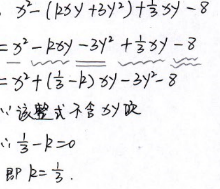 x²-(kxy+3y²)+⅓xy-8
=x²-kxy-3y²+⅓xy-8
=x²+(⅓-k)xy-3y²-8
∵该整式不含xy项
∴⅓-k=0
即k=⅓.